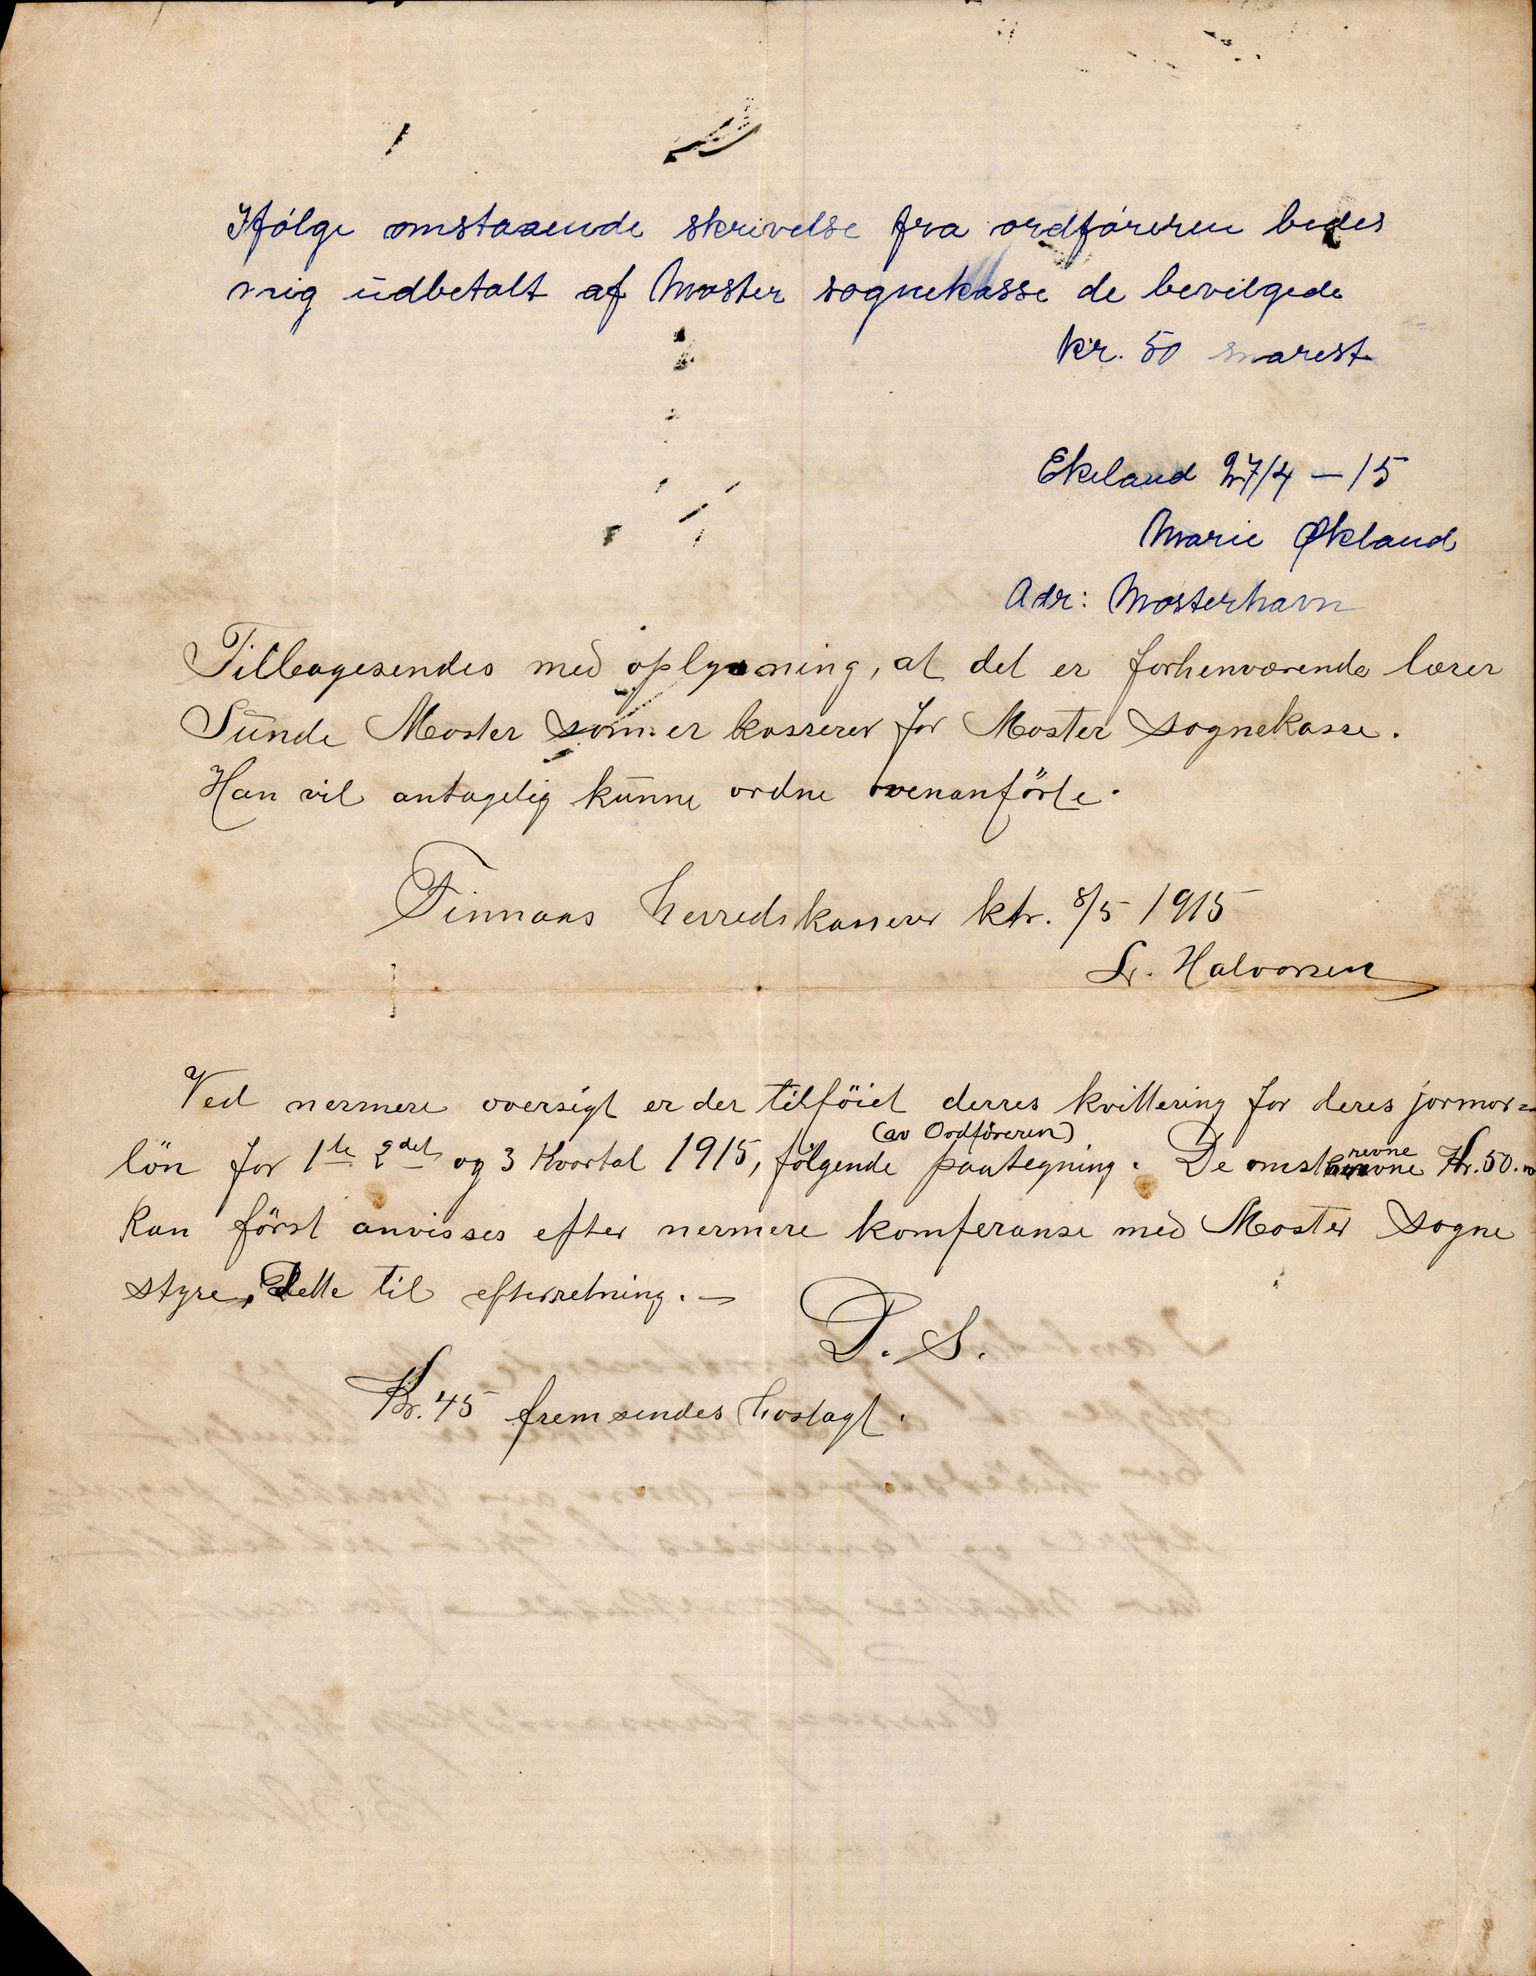 Ifølge omstaaende skrivelse fra ordføreren bedes
mig üdbetalt af Moster sognekasse de bevilgede
kr. 50 snarest
Ekeland 27/4 – 15
Marie Økland
Adr: Mosterhavn
Tilbagesendes med oplysning, at det er forhenværende lærer
Sünde Moster som er kasserer for Moster sognekasse.
Han vil antagelig künne ordne ovenanförte.
Finnaas herredskasserer ktr. 8/5 1915
L. Halvorsen
Ved nermere oversigt er der tilföiet derres kvittering for deres jormor=
lön for 1ste 2det og 3 Kvartal 1915, følgende (av Ordföreren) paategning. De omskrevne Kr. 50.
kan först anvisses efter nermere komferanse med Moster Sogne
styre, Dette til efterretning. –
D. S.
Kr. 45 fremsendes hoslagt.